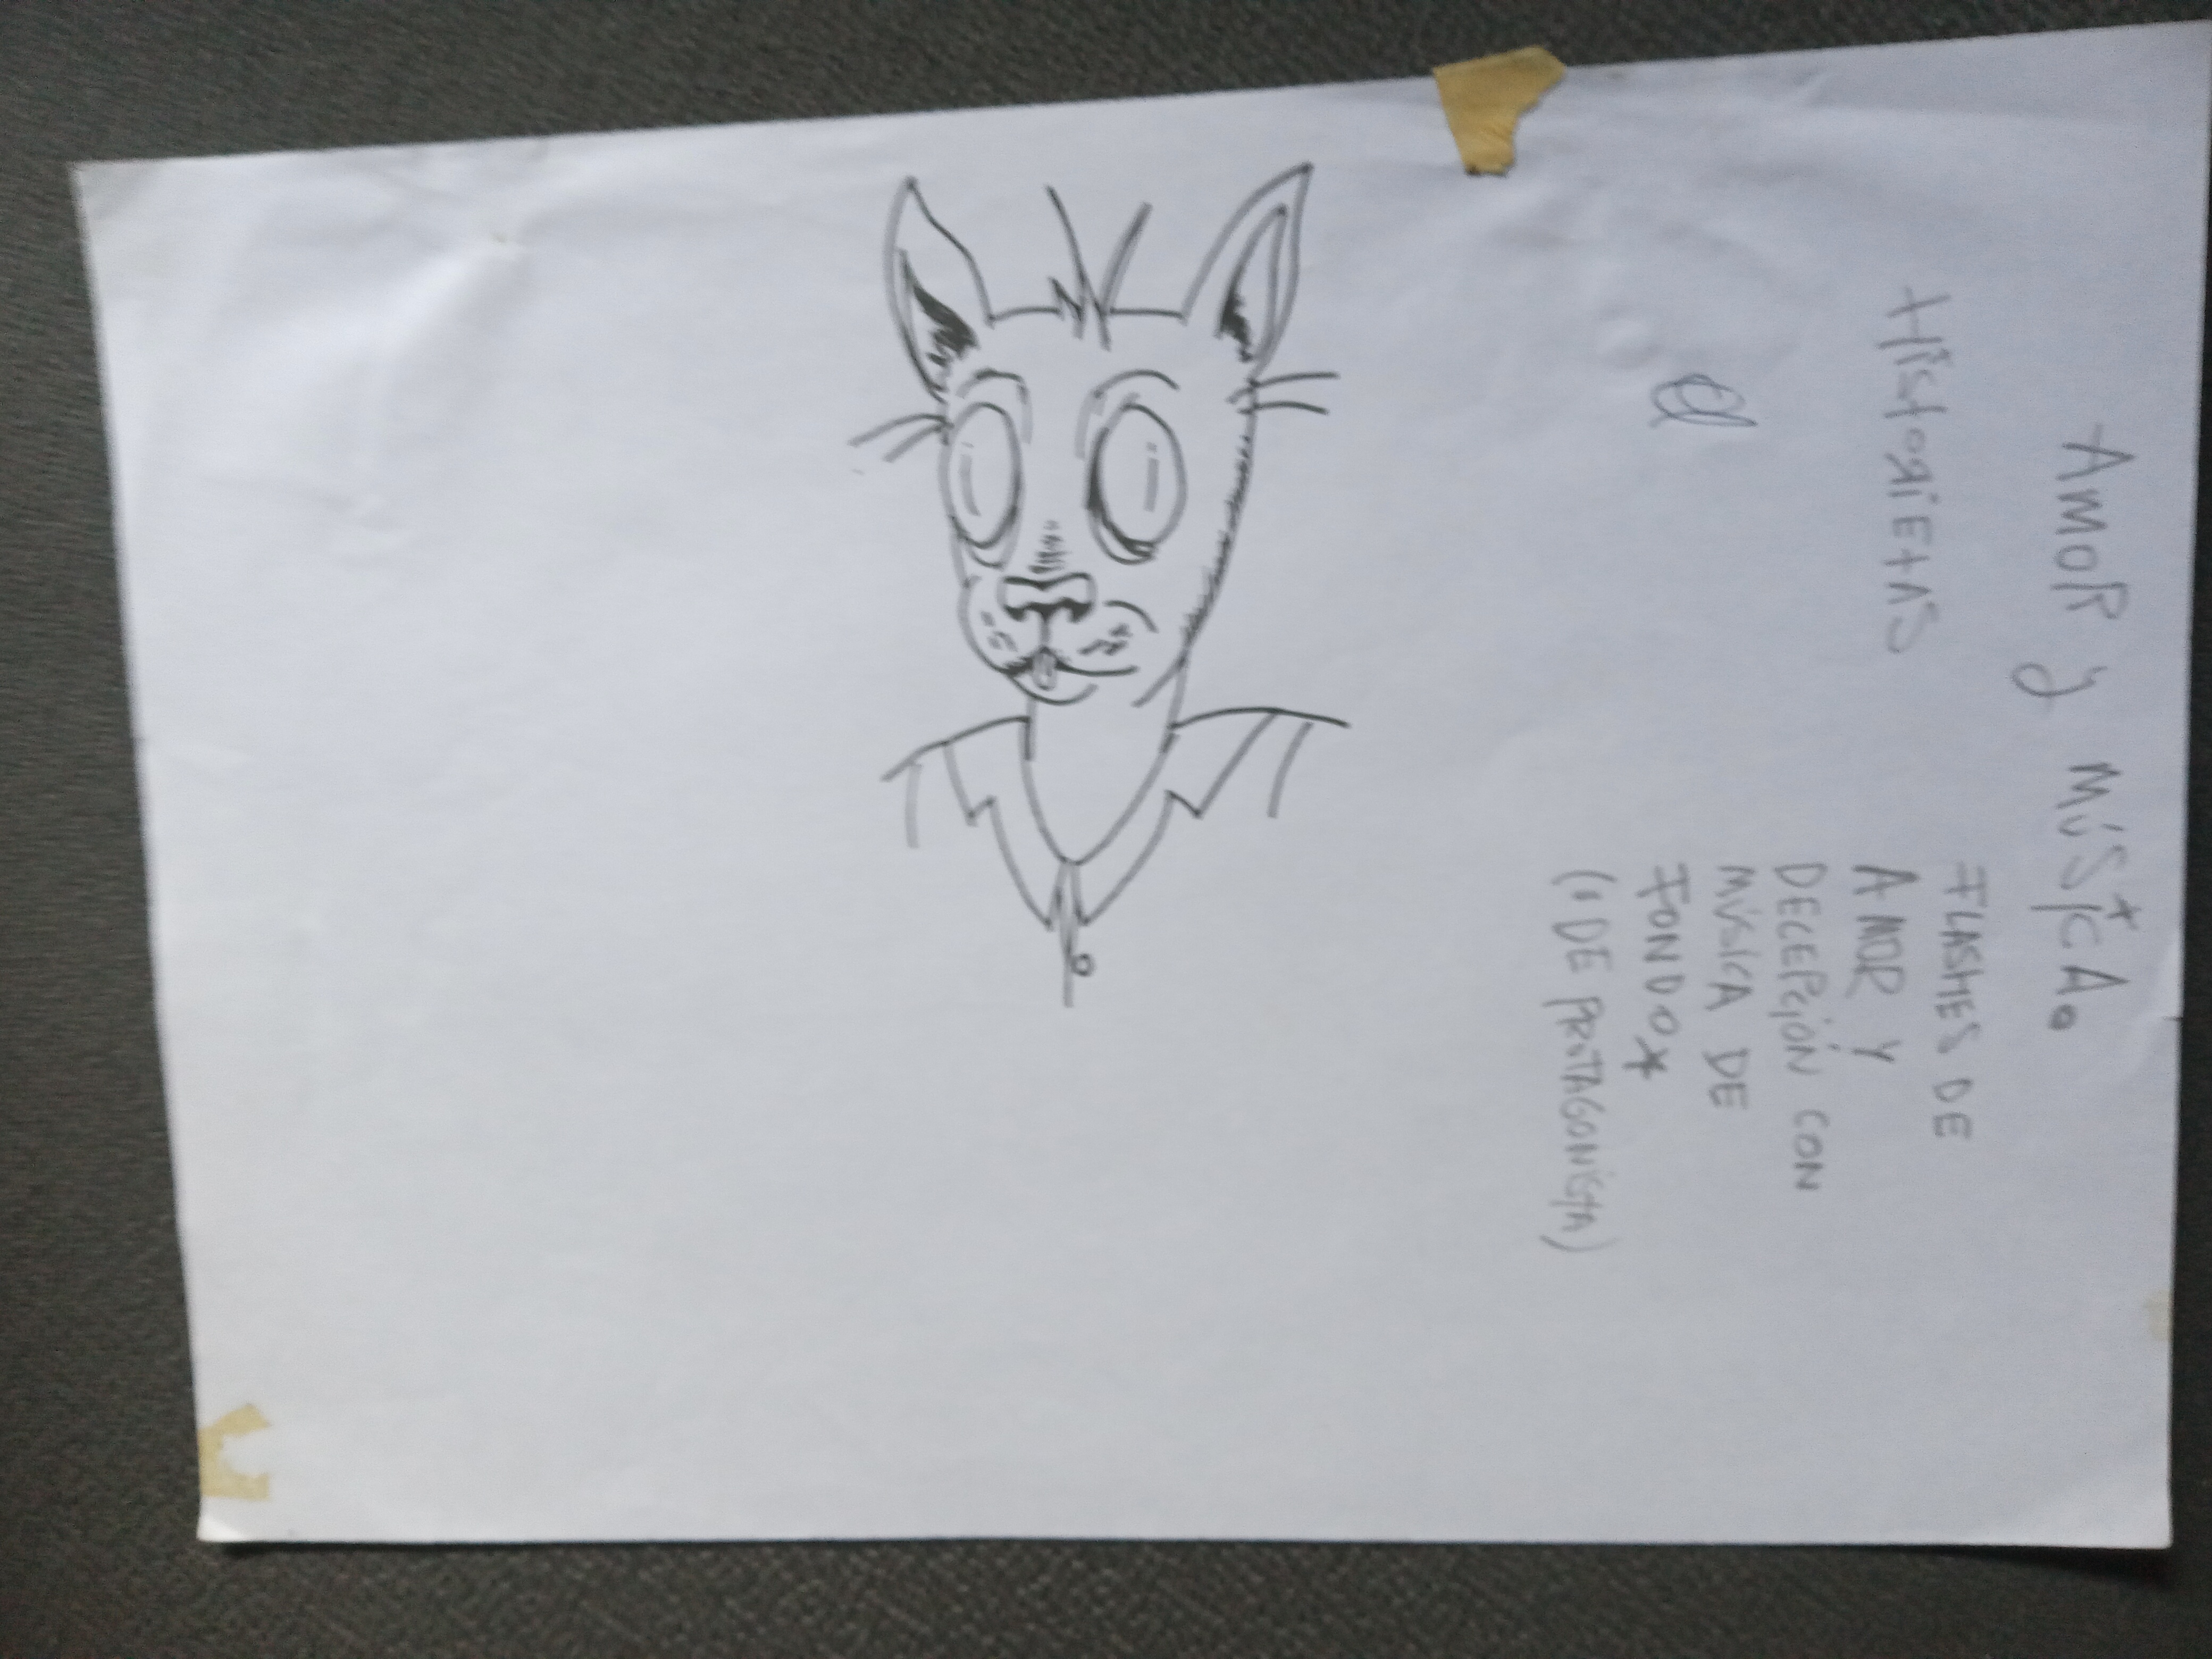 AMOR y MÚSICA.
HISTORIETAS
FLASHES DE
AMOR Y
DECEPCIÓN CON
MÚSICA DE
FONDO*
(O DE PROTAGONISTA)